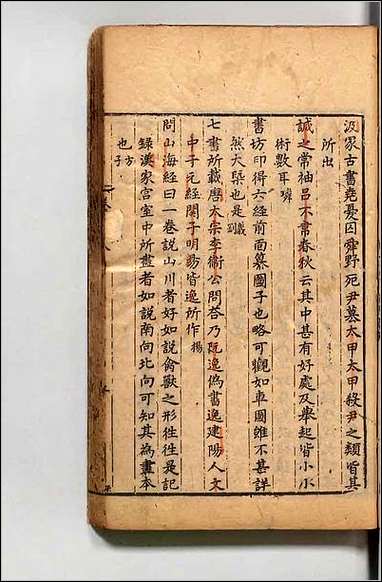 汲冢古書堯憂囚舜野死尹篡太甲太甲殺尹之類皆其
所出
誠之常袖呂不常春秋云其中甚有好處及舉起皆小小
術數耳璘
書坊印得六經前面纂圖子也略可觀如車圖雖不甚詳
然大槩也是義剛
七書所載唐太宗李衛公問答乃阮逸偽書逸建陽人文
中子元經関子明易皆逸所作揚
問山海經曰一卷說山川者好如說禽獸之形徃徃是記
録漢家宫室中所畫者如說南向北向可知其為畫本
也方子